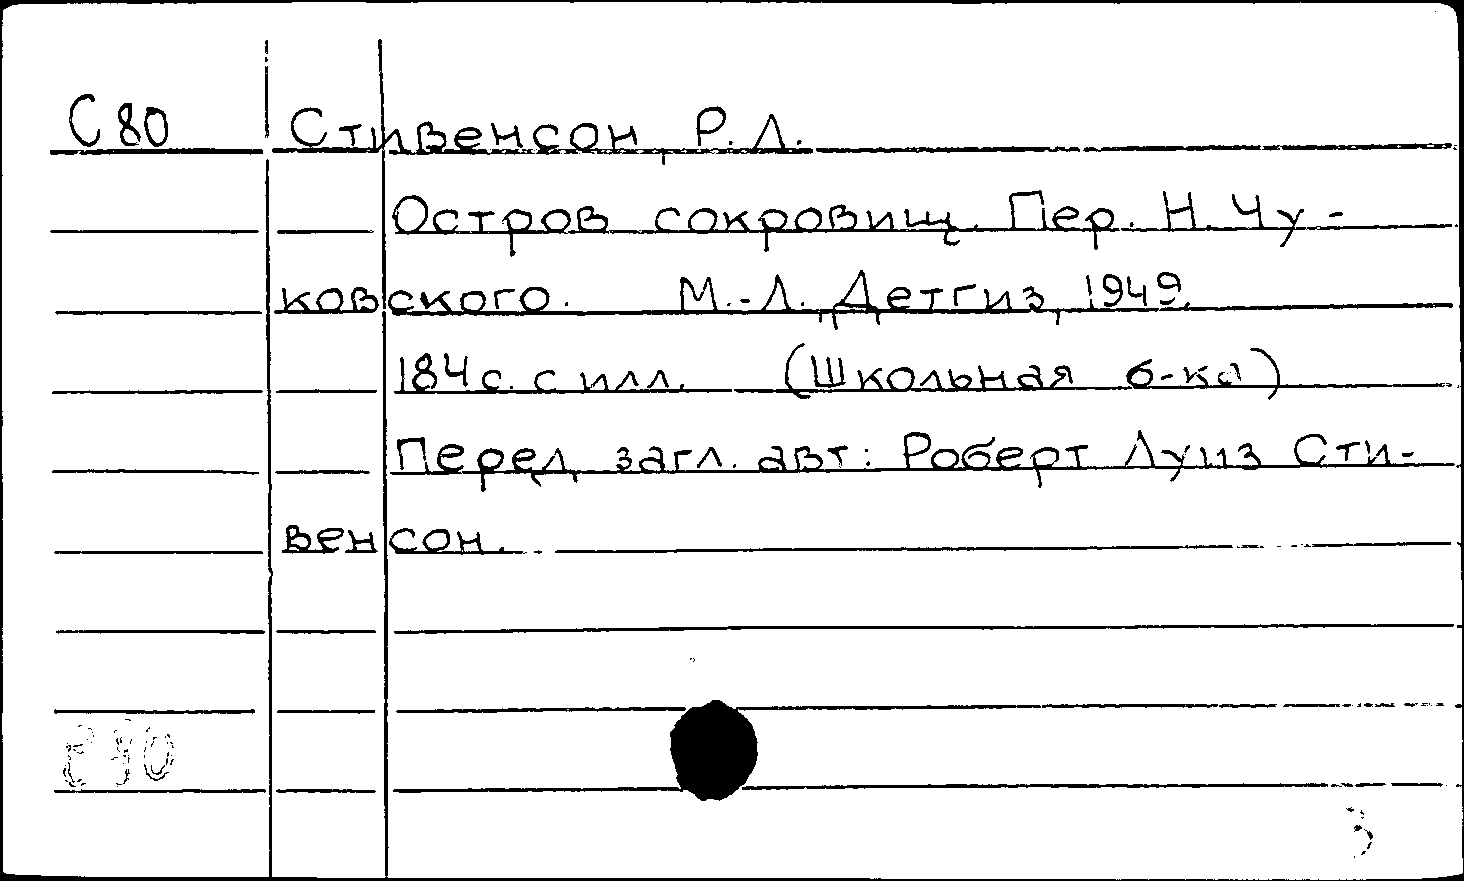 С 80 Стивенсон, Р. Л.
Остров сокровищ. Пер. Н. Чу-
ковского. М.-Л., Детгиз, 1949.
184 с. с илл. (Школьная б-ка)
Перед загл. авт: Роберт Луиз Сти-
венсон.
3